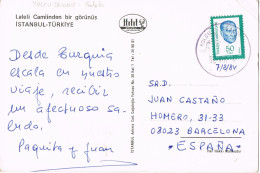 Laleli Camiinden bir görünüş
İSTANBUL-TÜRKİYE
Desde Turquia
escala en nuestro
viaje, recibir
un afectuoso sa-
ludo.
Paquita y Juan
50
7/8/84
SR.D.
JUAN CASTAÑO
HOMERO, 31-33
08023 BARCELONA
-ESPAÑA-